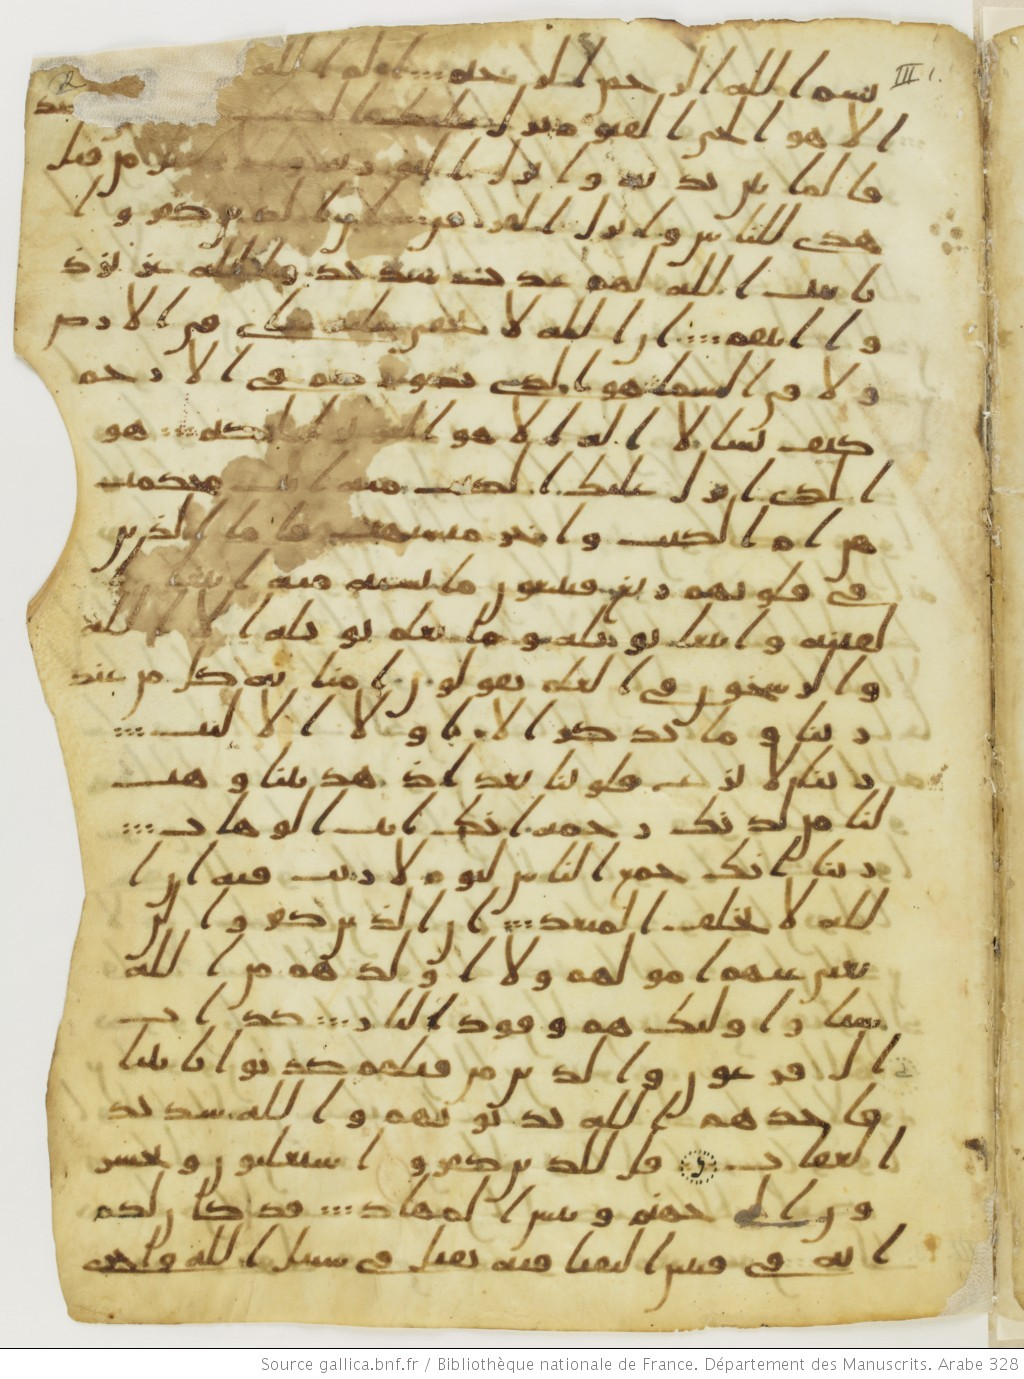 III 1.
2
بسم الله الرحمن الرحيم الم الله
الا هو الحي القيوم نزل عليك الكتب
قا لما بين يديه وانزل التوريه من قبل
هدى للناس وانزل الفرقن ان الذين كفروا
بايت الله لهم عذب شديد والله عزيز ذ
و انتقم ان الله لا يخفى عليه شى في الارض
ولا في السما هو الذي يصوركم في الارحم
كيف يشا لا اله الا هو العزيز الحكيم هو
الذي انزل عليك الكتب منه ايت محكمت
هن ام الكتب واخر متشبهت فاما الذين
في قلوبهم زيغ فيتبعون ما تشبه منه ابتغا
الفتنه وابتغا تويله وما يعلم تويله الا الله
والرسخون في العلم يقولون امنا به كل من عند
ربنا وما يذكر الا اولوا الالبب
ربنا لا تزغ قلوبنا بعد اذ هديتنا وهب
لنا من لدنك رحمه انك انت الوهاب
ربنا انك جمع الناس ليوم لا ريب فيه ان ا
لله لا يخلف الميعد ان الذين كفروا لن
تغني عنهم امولهم ولا اولدهم من الله
شيا واوليك هم وقود النار كداب
ال فرعون والذين من قبلهم كذبوا بايتنا
فاخذهم الله بذنوبهم والله شديد
العقاب قل للذين كفروا ستغلبون وتحشر
ون الى جهنم وبيس المهاد قد كان لكم
ايه في فيتين التقتا فيه تقتل في سبيل الله واخرى
Source gallica.bnf.fr / Bibliothèque nationale de France. Département des Manuscrits. Arabe 328